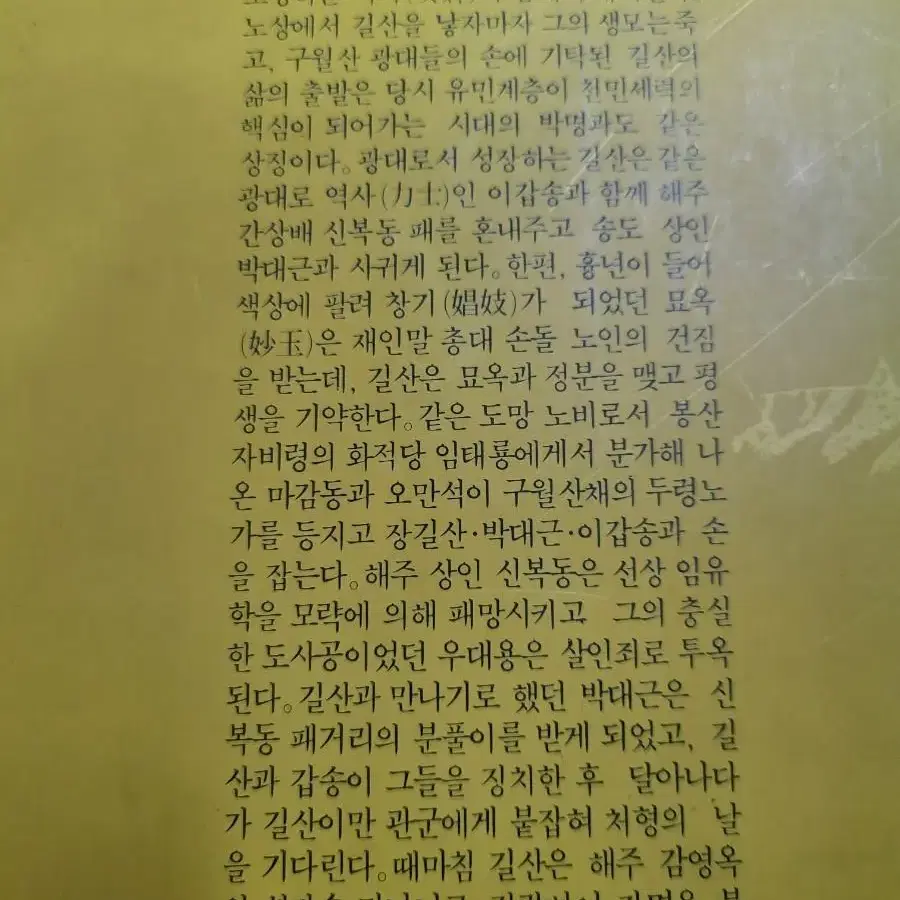 노상에서 길산을 낳자마자 그의 생모는죽
고, 구월산 광대들의 손에 기탁된 길산의
삶의 출발은 당시 유민계층이 천민세력의
핵심이 되어가는 시대의 박명과도 같은
상징이다. 광대로서 성장하는 길산은 같은
광대로 역사(力士)인 이갑송과 함께 해주
간상배 신복동 패를 혼내주고 송도 상인
박대근과 사귀게 된다. 한편, 흉년이 들어
색상에 팔려 창기(娼妓)가 되었던 묘옥
(妙玉)은 재인말 총대 손돌 노인의 건짐
을 받는데, 길산은 묘옥과 정분을 맺고 평
생을 기약한다. 같은 도망 노비로서 봉산
자비령의 화적당 임태룡에게서 분가해 나
온 마감동과 오만석이 구월산채의 두령노
가를 등지고 장길산·박대근·이갑송과 손
을 잡는다. 해주 상인 신복동은 선상 임유
학을 모략에 의해 패망시키고 그의 충실
한 도사공이었던 우대용은 살인죄로 투옥
된다. 길산과 만나기로 했던 박대근은 신
복동 패거리의 분풀이를 받게 되었고, 길
산과 갑송이 그들을 징치한 후 달아나다
가 길산이만 관군에게 붙잡혀 처형의 날
을 기다린다. 때마침 길산은 해주 감영옥